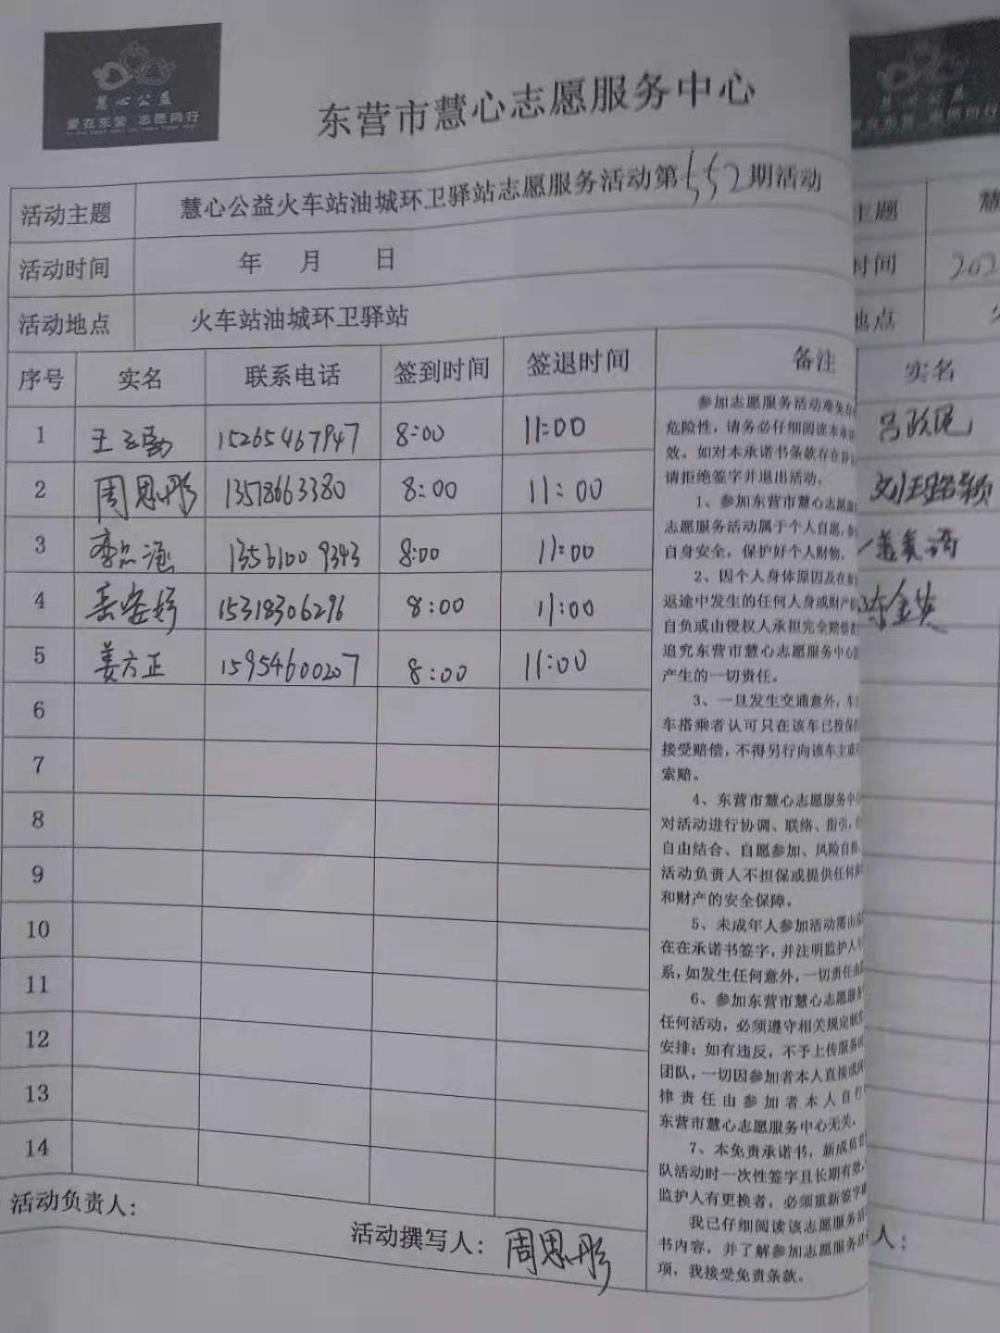 慧心公益
爱在东营 志愿同行
东营市慧心志愿服务中心
活动主题 慧心公益火车站油城环卫驿站志愿服务活动第552期活动
活动时间 年 月 日
活动地点 火车站油城环卫驿站
序号 实名 联系电话 签到时间 签退时间 备注
1 王 15265467947 8:00 11:00
2 周思彤 13578663380 8:00 11:00
3 李 13561009343 8:00 11:00
4 岳安婷 15318306296 8:00 11:00
5 姜方正 15954600207 8:00 11:00
6
7
8
9
10
11
12
13
14
参加志愿服务活动难免存
危险性，请务必仔细阅读本承
效。如对本承诺书条款存在异
请拒绝签字并退出活动。
1、参加东营市慧心志愿
志愿服务活动属于个人自愿，
自身安全，保护好个人财物，
2、因个人身体原因及在
返途中发生的任何人身或财产
自负或由侵权人承担完全赔偿
追究东营市慧心志愿服务中心
产生的一切责任。
3、一旦发生交通意外，车
车搭乘者认可只在该车已投保
接受赔偿，不得另行向该车主或
索赔。
4、东营市慧心志愿服务中
对活动进行协调、联络、指引，
自由结合、自愿参加、风险自
活动负责人不担保或提供任何
和财产的安全保障。
5、未成年人参加活动需由
在在承诺书签字，并注明监护人
系，如发生任何意外，一切责任由
6、参加东营市慧心志愿服务
任何活动，必须遵守相关规定
安排；如有违反，不予上传服务
团队，一切因参加者本人直接或
律责任由参加者本人自行
东营市慧心志愿服务中心无关，
7、本免责承诺书，新成员
队活动时一次性签字且长期有效，
监护人有更换者，必须重新签字
我已仔细阅读该志愿服务
书内容，并了解参加志愿服务
项，我接受免责条款。
活动负责人：
活动撰写人：周思彤
主题 慧
时间 202
地点
实名
吕政民
人：